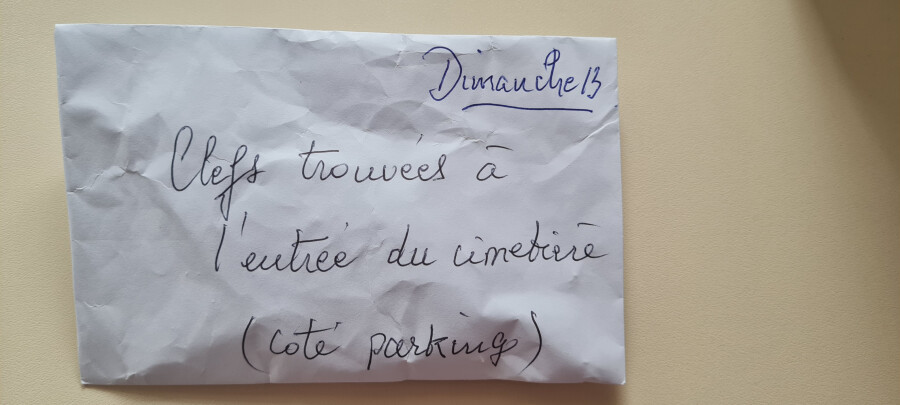 Dimanche 13
Clefs trouvées à
l'entrée du cimetière
(coté parking)